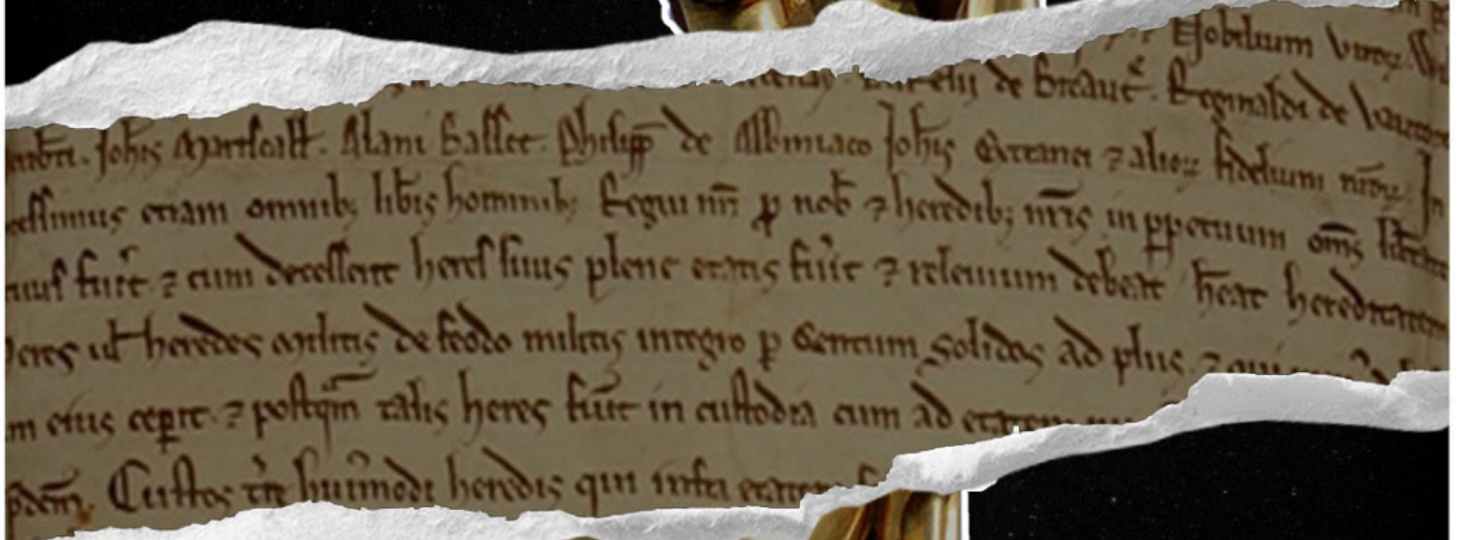 Nobilium virorꝫ
de Breaute. Reginaldi de
Joh̄is Marescall. Alani Basset. Philipp̄ de Albiniaco Joh̄is Extranei ⁊ alioꝝ fidelium nr̄oꝝ. In
etiam omnibꝫ lib̄is hominibꝫ Regni nr̄i ꝑ nob̄ ⁊ heredibꝫ nr̄is in ꝑpetuum om̄s
fuit̄ ⁊ cum decesserit heres suus plene etatis fu̾it ⁊ releuium debeat h̄eat hereditatem
ul̄ heredes militis de feodo militis integro ꝑ Centum solidos ad plus ⁊ qui
m eius ceꝑit. ⁊ postqm̄ talis heres fu̾it in custodia cum ad etatem
Custos t̾re hui̾modi heredis qui infra etatem